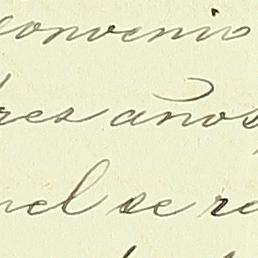 convenio
tres años,
nel se re